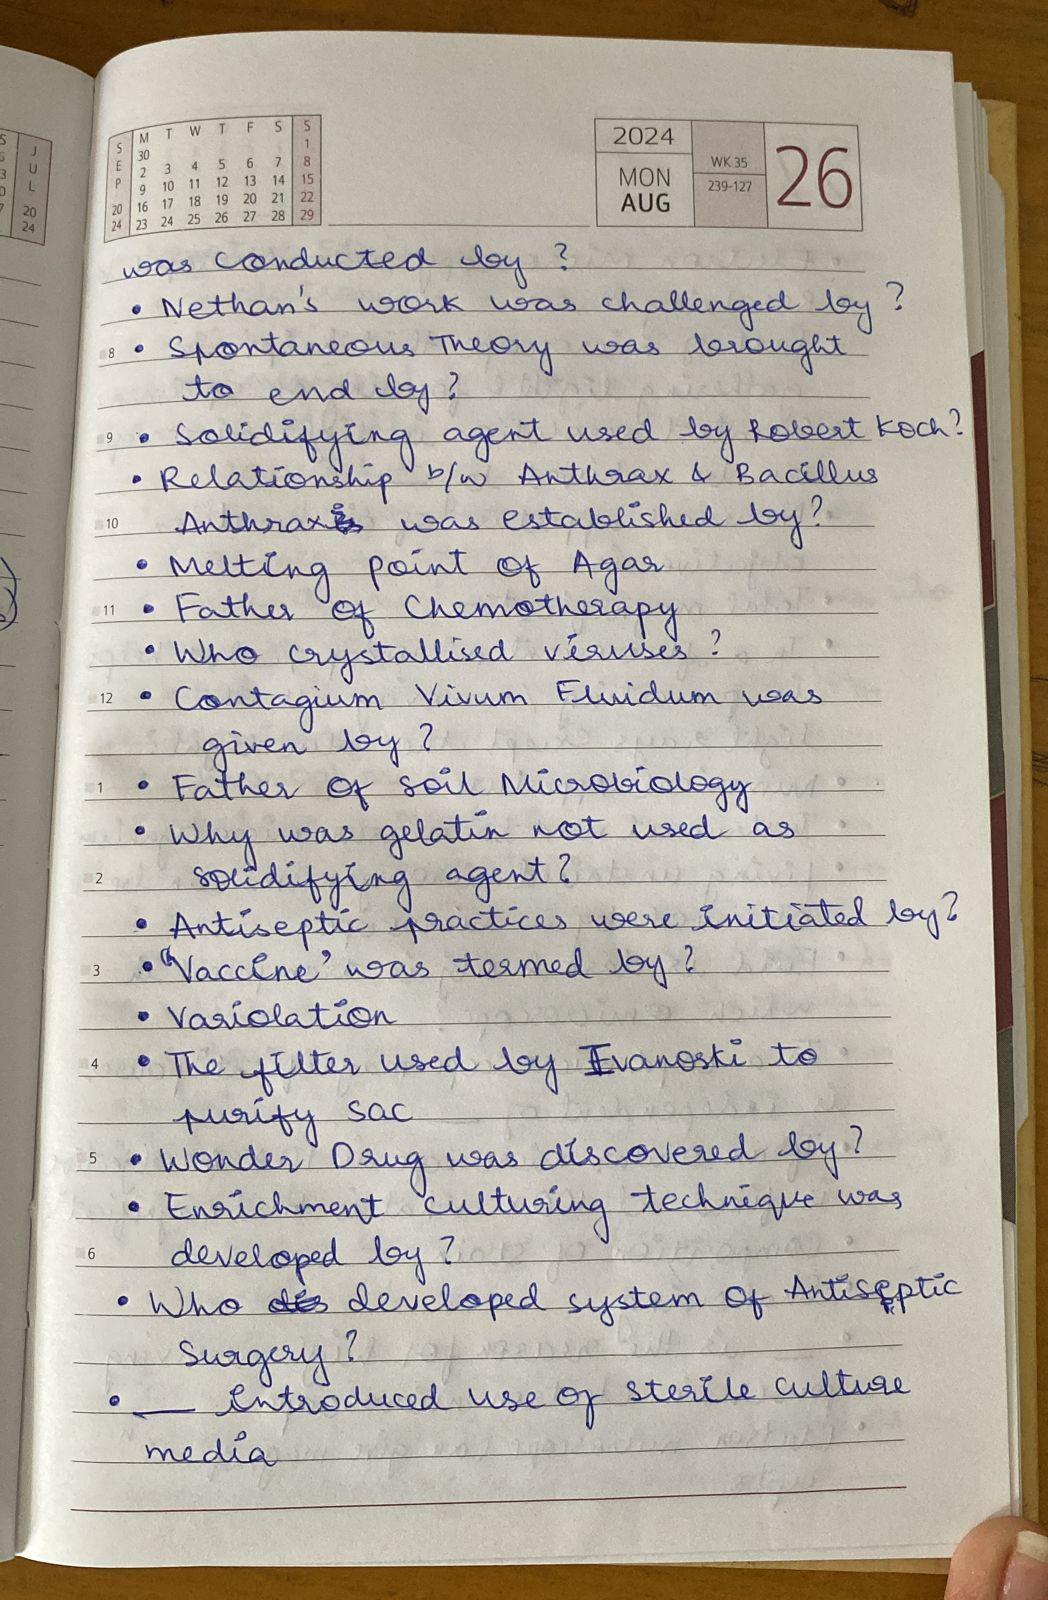 S M T W T F S S
E 30 1
P 2 3 4 5 6 7 8
9 10 11 12 13 14 15
20 16 17 18 19 20 21 22
24 23 24 25 26 27 28 29
J
U
L
20
24
2024
MON
AUG
WK 35
239-127
26
was conducted by ?
• Nethan's work was challenged by ?
8 • Spontaneous Theory was brought
to end by ?
9 • Solidifying agent used by Robert Koch?
• Relationship b/w Anthrax & Bacillus
10 Anthraxis was established by ?
• Melting point of Agar
11 • Father of Chemotherapy
• Who crystallised viruses ?
12 • Contagium Vivum Fluidum was
given by ?
1 • Father of Soil Microbiology
• Why was gelatin not used as
2 solidifying agent ?
• Antiseptic practices were initiated by ?
3 • "Vaccine' was termed by ?
• Variolation
4 • The filter used by Ivanoski to
purify sac
5 • Wonder Drug was discovered by ?
• Enrichment culturing technique was
6 developed by ?
• Who developed system of Antiseptic
Surgery ?
• __ introduced use of sterile culture
media